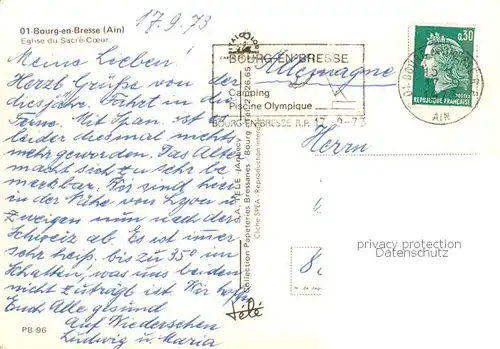 01-Bourg-en-Bresse (Ain)
Eglise du Sacré-Cœur.
17.9.73
Meine Lieben!
Herzl. Grüße von der
diesjähr. Fahrt in die
Ferne. Mit Span. ist es
leider diesmal nichts
mehr geworden. Das Alter
macht sich zu sehr be-
merkbar. Wir sind hier
in der Nähe von Lyon u.
zweigen nun nach der
Schweiz ab. Es ist immer
sehr heiß bis zu 35° im
Schatten, was uns beiden
nicht zuträgl. ist. Wir hoffen
Euch Alle gesund
Auf Wiedersehen
Ludwig u. Maria
PB 96
S.A. TELE
Collection Papeteries Bressanes - Bourg
Cliché SPEA - Reproduction interdite
télé
BOURG-EN-BRESSE
Camping
Piscine Olympique
BOURG-EN-BRESSE R.P. 17-9-73
Allemagne
0,30
POSTES
REPUBLIQUE FRANÇAISE
AIN
Herrn
privacy protection
Datenschutz
8